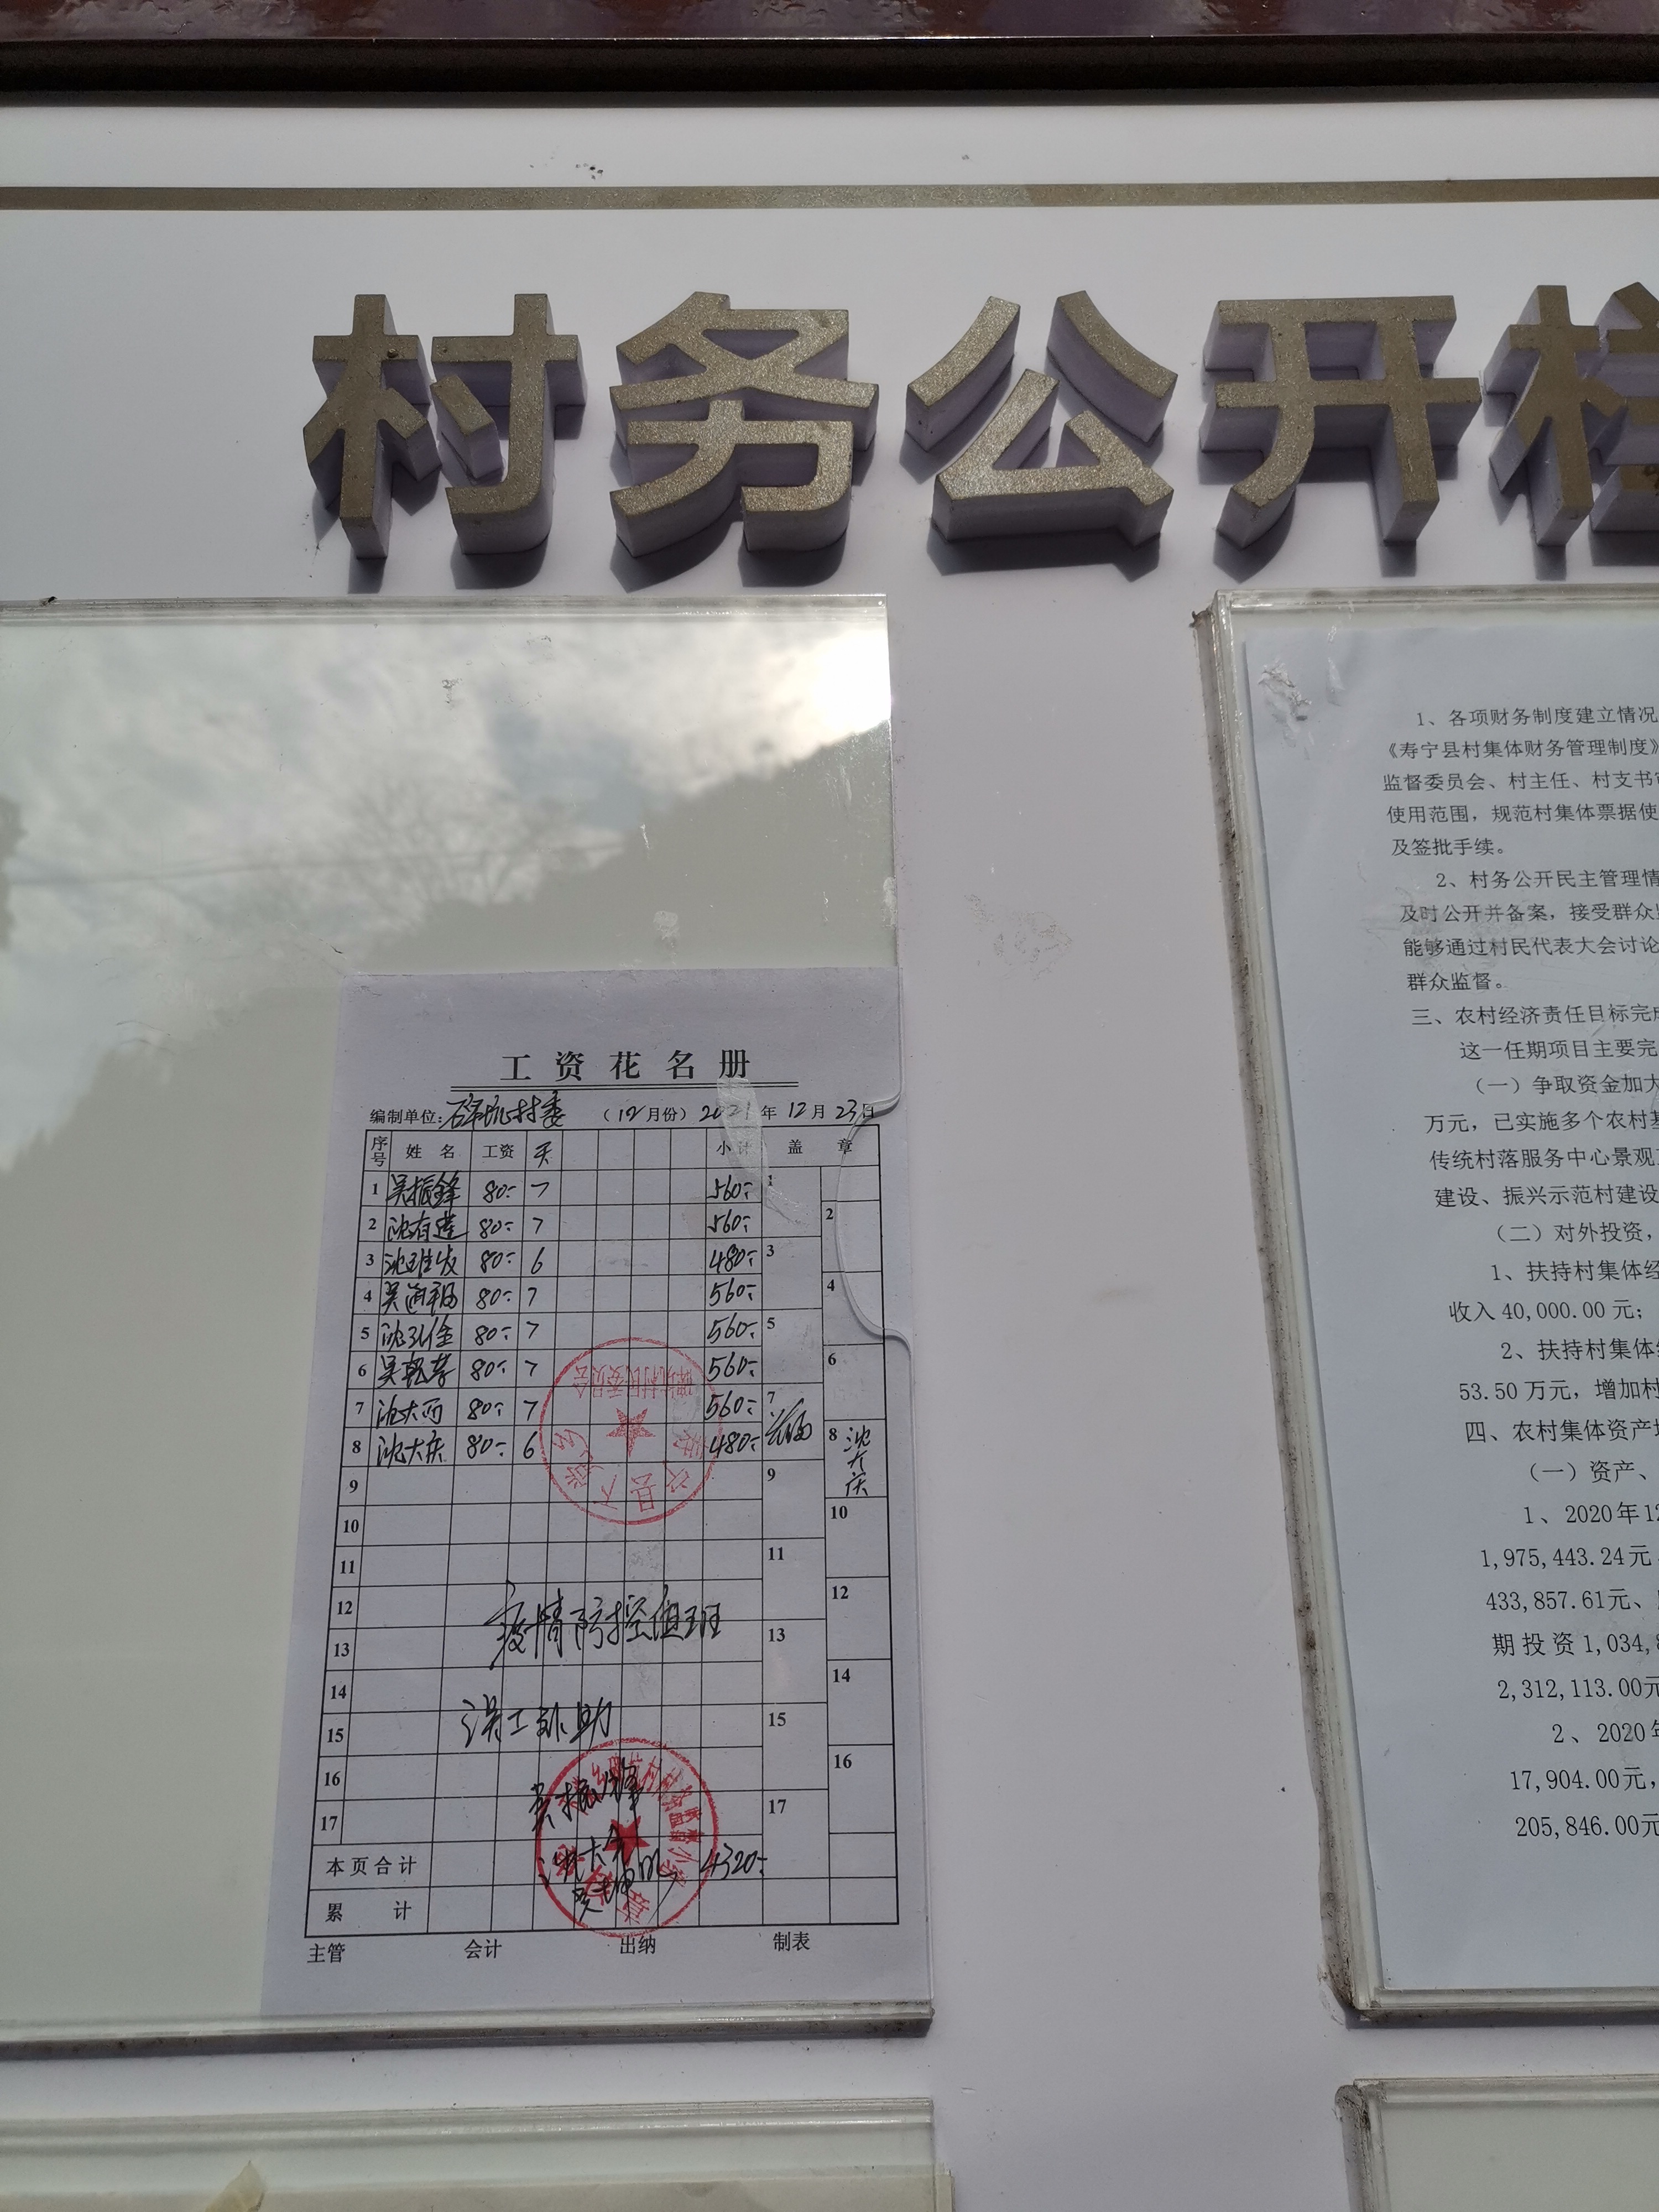 村务公开栏
工资花名册
编制单位:碑坑村委 (12月份) 2021年12月23日
序号 姓名 工资 天 小计 盖章
1 吴振锋 80- 7 560-
2 沈有莲 80- 7 560-
3 80- 6 480-
4 80- 7 560-
5 80- 7 560-
6 80- 7 560-
7 沈大西 80- 7 560-
8 沈大庆 80- 6 480- 沈大庆
9
10
11
12
13
14
15
16
17
疫情防控值班
误工补助
吴振锋
本页合计 4320-
累计
主管 会计 出纳 制表
1、各项财务制度建立情况
《寿宁县村集体财务管理制度》
监督委员会、村主任、村支书
使用范围，规范村集体票据使
及签批手续。
2、村务公开民主管理情
及时公开并备案，接受群众
能够通过村民代表大会讨论
群众监督。
三、农村经济责任目标完成
这一任期项目主要完
（一）争取资金加大
万元，已实施多个农村基
传统村落服务中心景观
建设、振兴示范村建设
（二）对外投资，
1、扶持村集体经
收入40,000.00元；
2、扶持村集体
53.50万元，增加村
四、农村集体资产
（一）资产、
1、2020年12
1,975,443.24元
433,857.61元、
期投资1,034,8
2,312,113.00元
2、2020年
17,904.00元，
205,846.00元